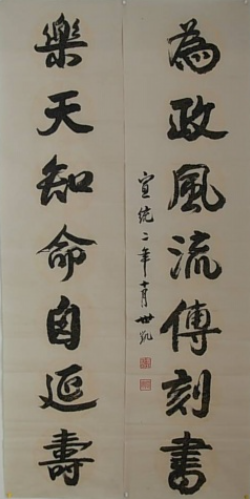 為政風流傳刻書
樂天知命自延壽
宣統二年十月 世凱